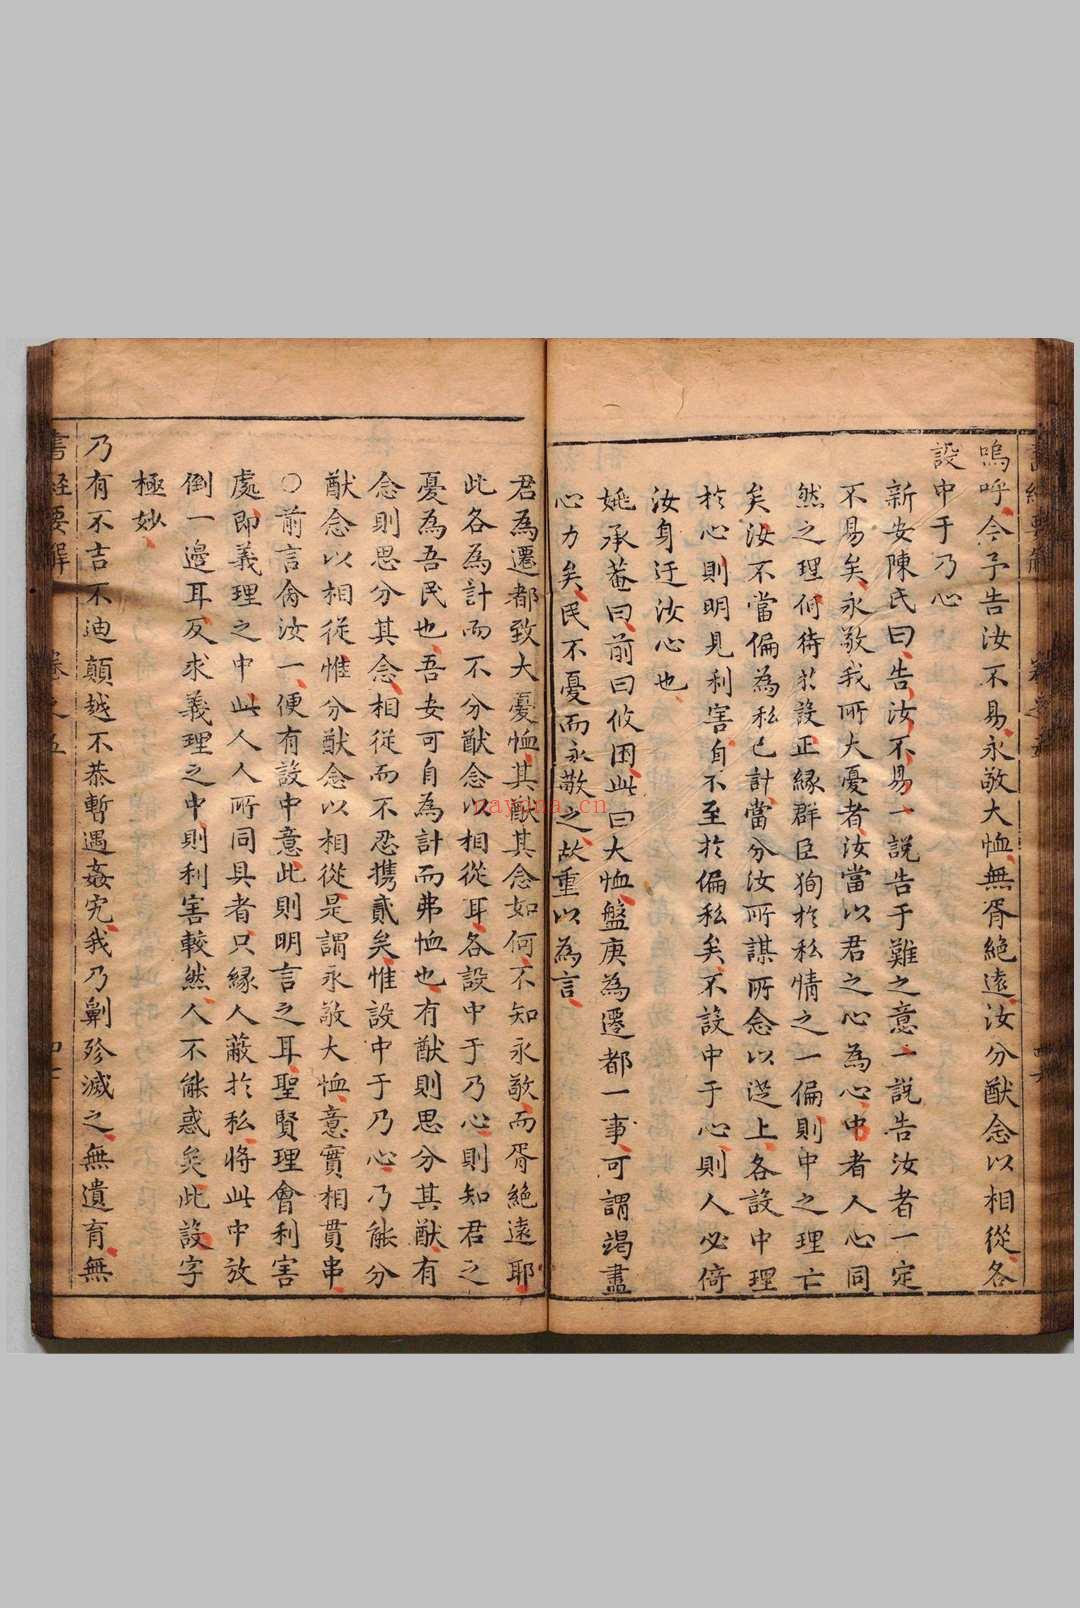 嗚呼今予告汝不易永敬大恤無胥絕遠汝分猷念以相從各
設中于乃心
新安陳氏曰告汝不易一說告于難之意一說告汝者一定
不易矣永敬我所大憂者汝當以君之心為心中者人心同
然之理何待於設正緣群臣狥於私情之一偏則中之理亡
矣汝不當偏為私己計當分汝所謀所念以從上各設中理
於心則明見利害自不至於偏私矣不設中于心則人必倚
汝身迂汝心也
姚承菴曰前曰攸困此曰大恤盤庚為遷都一事可謂竭盡
心力矣民不憂而永敬之故重以為言
君為遷都致大憂恤其猷其念如何不知永敬而胥絕遠耶
此各為計而不分猷念以相從耳各設中于乃心則知君之
憂為吾民也吾安可自為計而弗恤也有猷則思分其猷有
念則思分其念相從而不忍攜貳矣惟設中于乃心乃能分
猷念以相從惟分猷念以相從是謂永敬大恤意實相貫串
○前言脅汝一便有設中意此則明言之耳聖賢理會利害
處即義理之中此人人所同具者只緣人蔽於私將此中放
倒一邊耳反求義理之中則利害較然人不能惑矣此設字
極妙
乃有不吉不迪顛越不恭暫遇姦宄我乃劓殄滅之無遺育無
書經要解 卷之五
nayona.cn